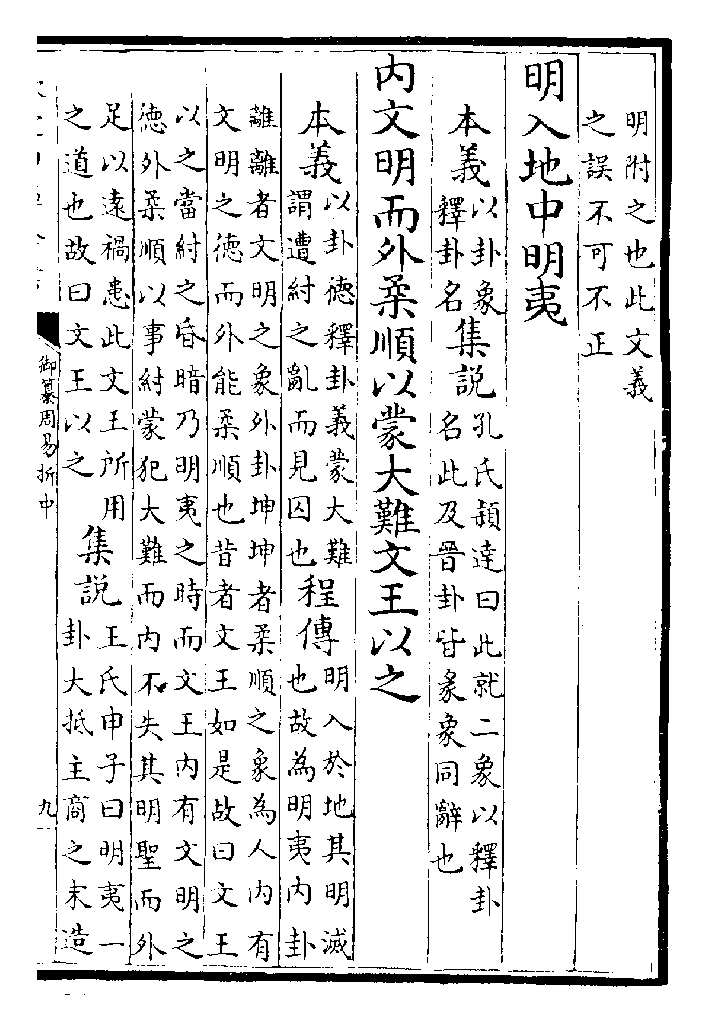 明附之也此文義
之誤不可不正
明入地中明夷
本義
以卦象
釋卦名
集説
孔氏頴達曰此就二象以釋卦
名此及晉卦皆彖象同辭也
内文明而外柔順以蒙大難文王以之
本義
以卦德釋卦義蒙大難
謂遭紂之亂而見囚也
程傳
明入於地其明滅
也故為明夷内卦
離離者文明之象外卦坤坤者柔順之象為人内有
文明之德而外能柔順也昔者文王如是故曰文王
以之當紂之昏暗乃明夷之時而文王内有文明之
德外柔順以事紂蒙犯大難而内不失其明聖而外
足以遠禍患此文王所用
之道也故曰文王以之
集説
王氏申子曰明夷一
卦大抵主商之末造
御纂周易折中
九